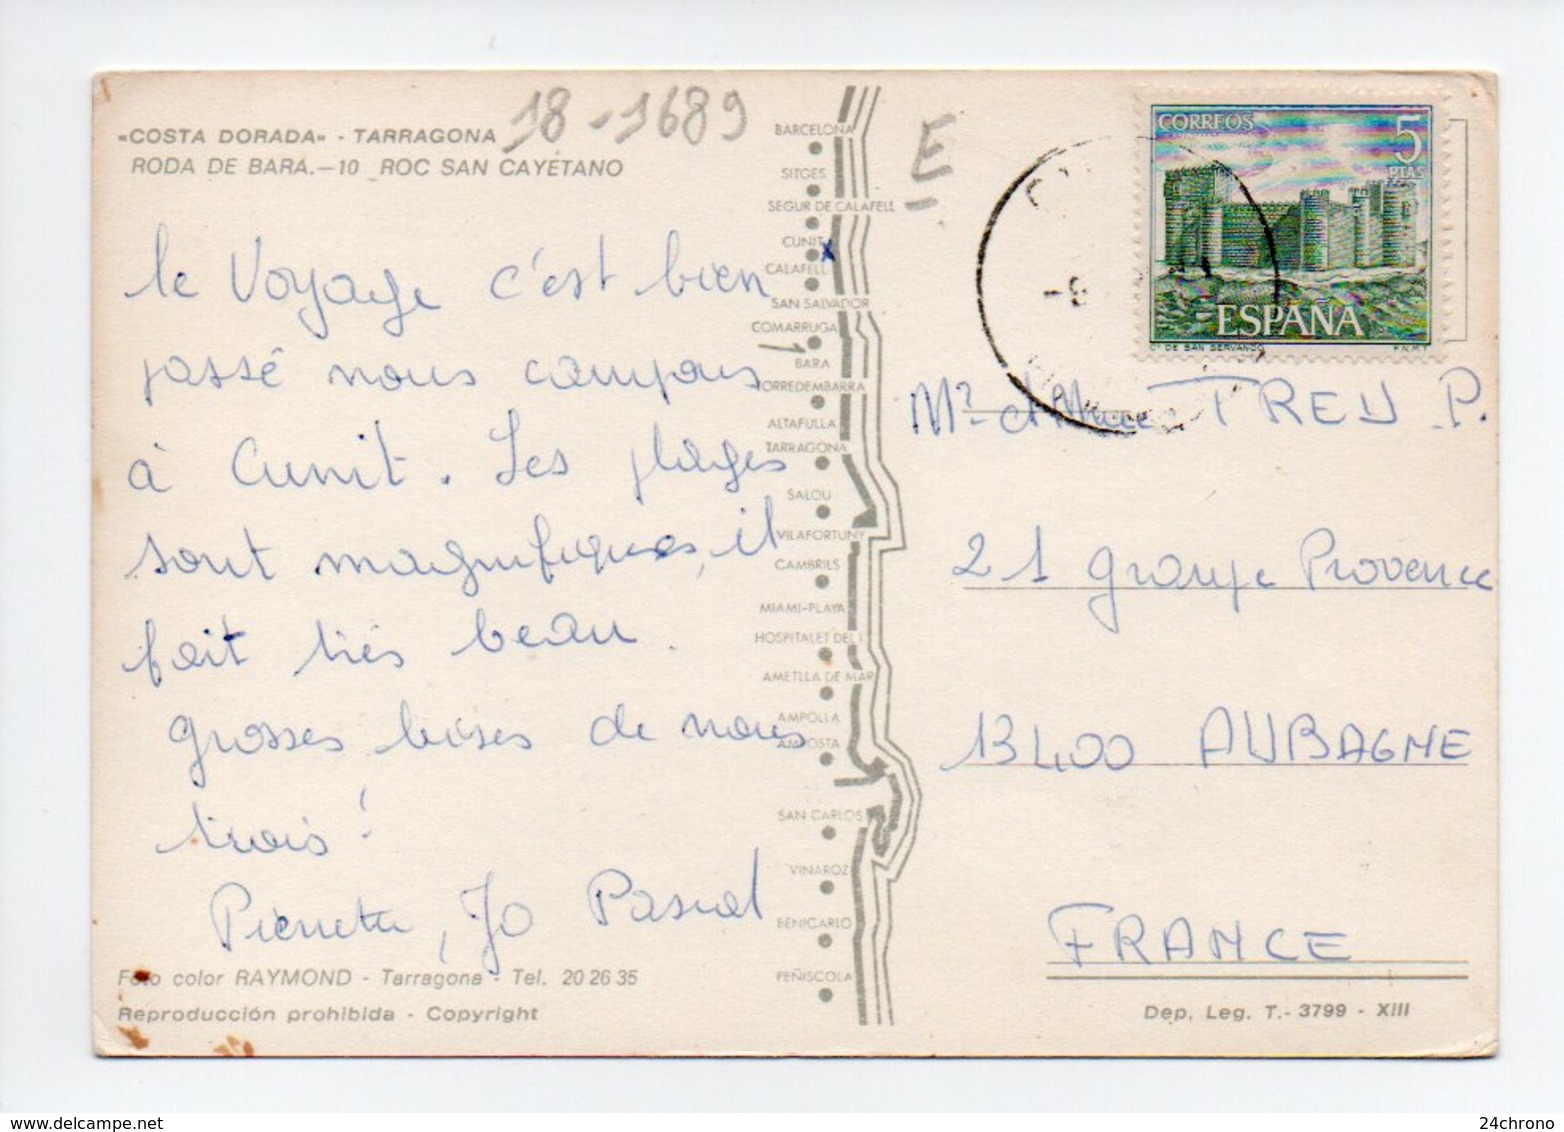 «COSTA DORADA» - TARRAGONA
RODA DE BARA.—10 ROC SAN CAYETANO
18-1689
E
le Voyage c'est bien
passé nous campons
à Cunit. Les plages
sont magnifiques, il
fait très beau.
grosses bises de nous
trois!
Pierrette, Jo Pascal
Foto color RAYMOND - Tarragona - Tel. 20 26 35
Reproducción prohibida - Copyright
BARCELONA
SITGES
SEGUR DE CALAFELL
CUNIT
X
CALAFELL
SAN SALVADOR
COMARRUGA
BARA
TORREDEMBARRA
ALTAFULLA
TARRAGONA
SALOU
VILAFORTUNY
CAMBRILS
MIAMI-PLAYA
HOSPITALET DEL I
AMETLLA DE MAR
AMPOLLA
AMPOSTA
SAN CARLOS
VINAROZ
BENICARLO
PEÑISCOLA
CORREOS
5
PTAS
ESPAÑA
Cº DE SAN SERVANDO F.N.M.T.
Mr et Mme TREU P.
21 grange Provence
13400 AUBAGNE
FRANCE
Dep. Leg. T.- 3799 - XIII
24chrono